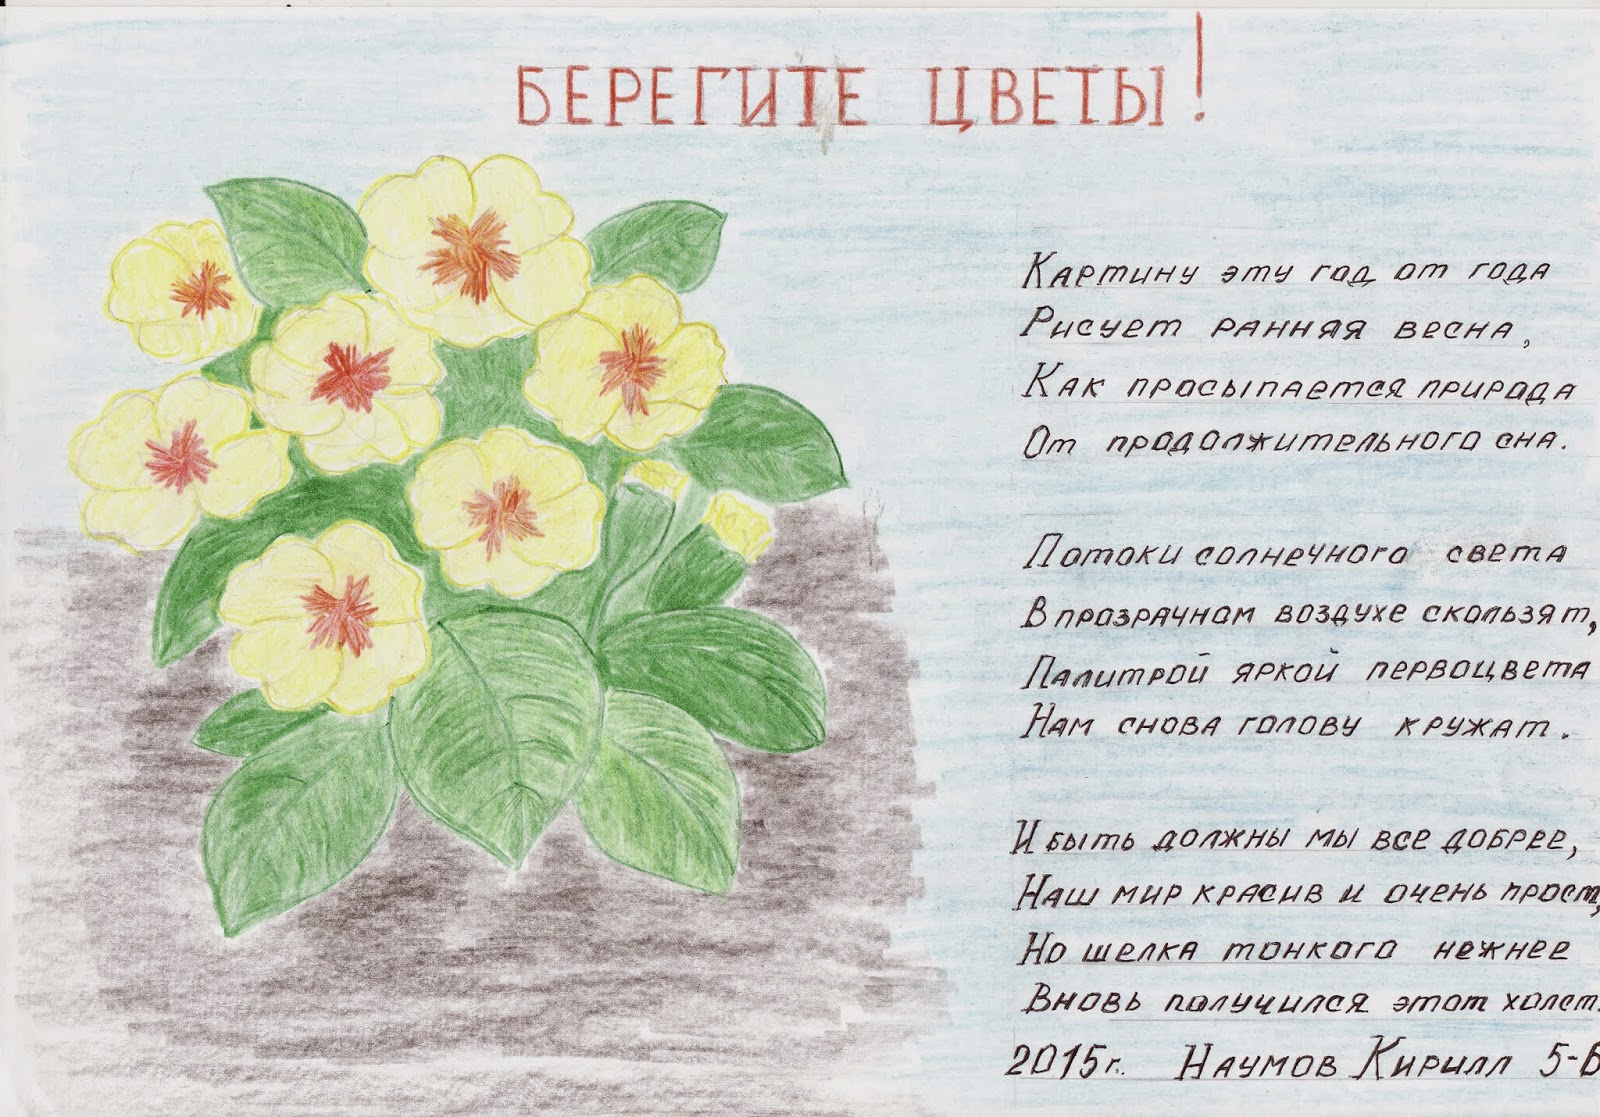 БЕРЕГИТЕ ЦВЕТЫ!
Картину эту год от года
Рисует ранняя весна,
Как просыпается природа
От продолжительного сна.
Потоки солнечного света
В прозрачном воздухе скользят,
Палитрой яркой первоцвета
Нам снова голову кружат.
И быть должны мы все добрее,
Наш мир красив и очень прост,
Но шелка тонкого нежнее
Вновь получился этот холст.
2015г. Наумов Кирилл 5-Б